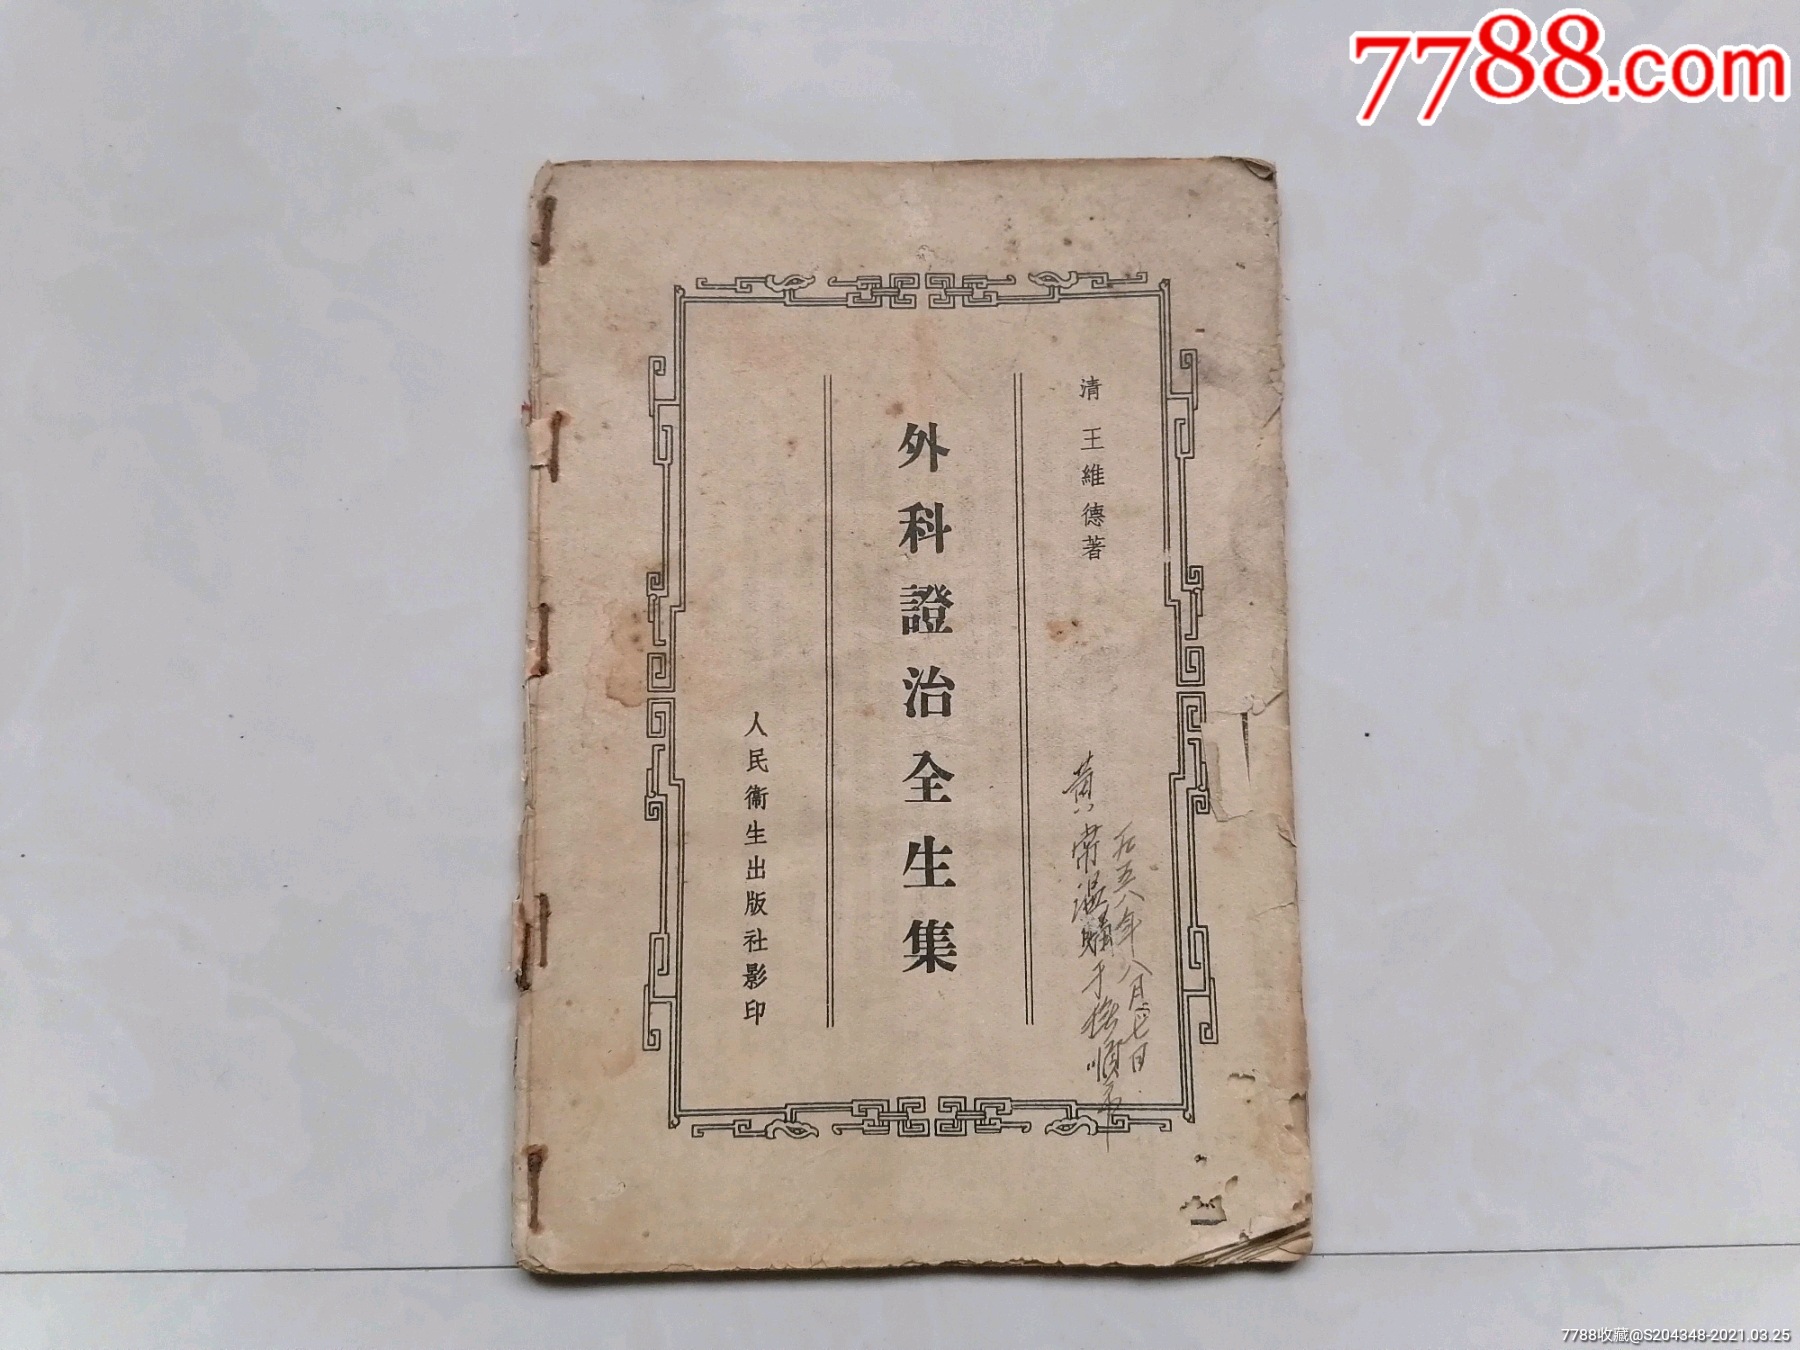 7788.com
清 王維德著
外科證治全生集
人民衞生出版社影印
五八年八月廿七日
購于撫順市
7788收藏@S204348-2021.03.25